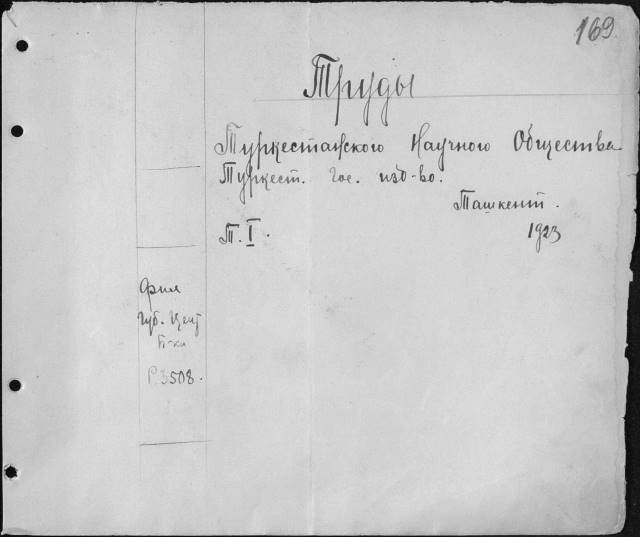 169
Труды
Туркестанского Научного Общества
Туркест. Гос. изд-во.
Ташкент.
Т. I.
1923
Фил
Губ. Цент
Б-ки
Р. 3508.